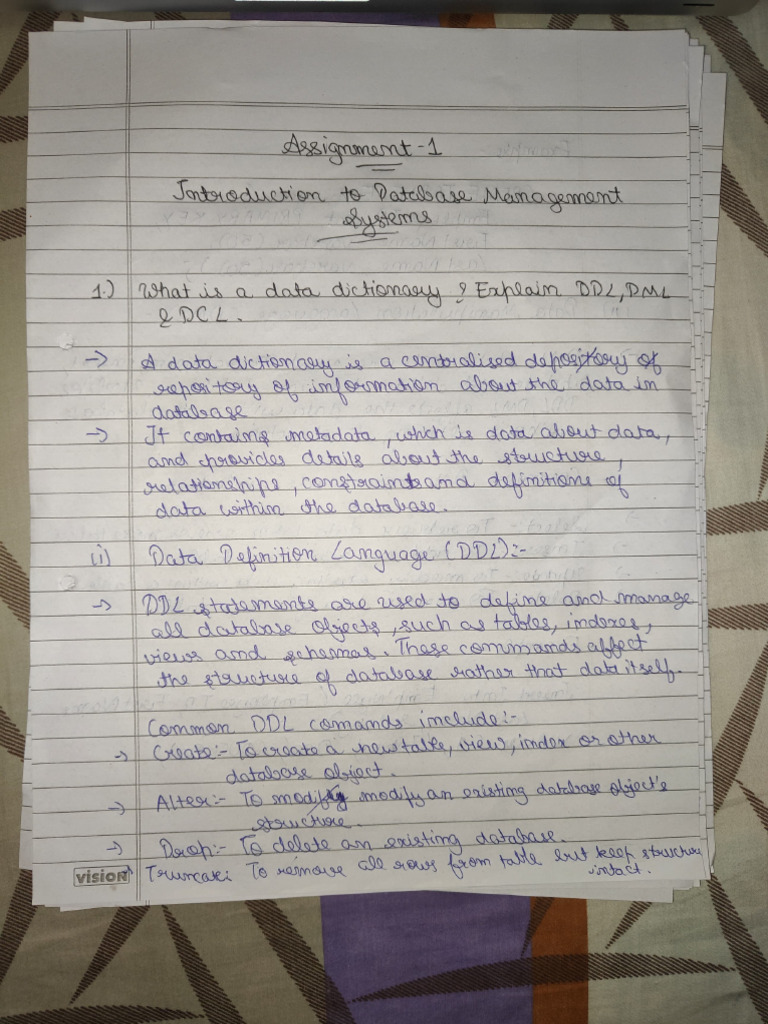 Assignment-1
Introduction to Database Management
Systems
1.) What is a data dictionary ? Explain DDL, DML
& DCL.
→ A data dictionary is a centralised depository of
repository of information about the data in
database
→ It contains metadata, which is data about data,
and provides details about the structure,
relationships, constraints and definitions of
data within the database.
ii) Data Definition Language (DDL):-
→ DDL statements are used to define and manage
all database objects, such as tables, indexes,
views and schemas. These commands affect
the structure of database rather that data itself.
Common DDL comands include:-
→ Create:- To create a new table, view, index or other
database object.
→ Alter:- To modify modify an existing database object's
structure.
→ Drop:- To delete an existing database.
→ Truncate: To remove all rows from table but keep structure
intact.
vision